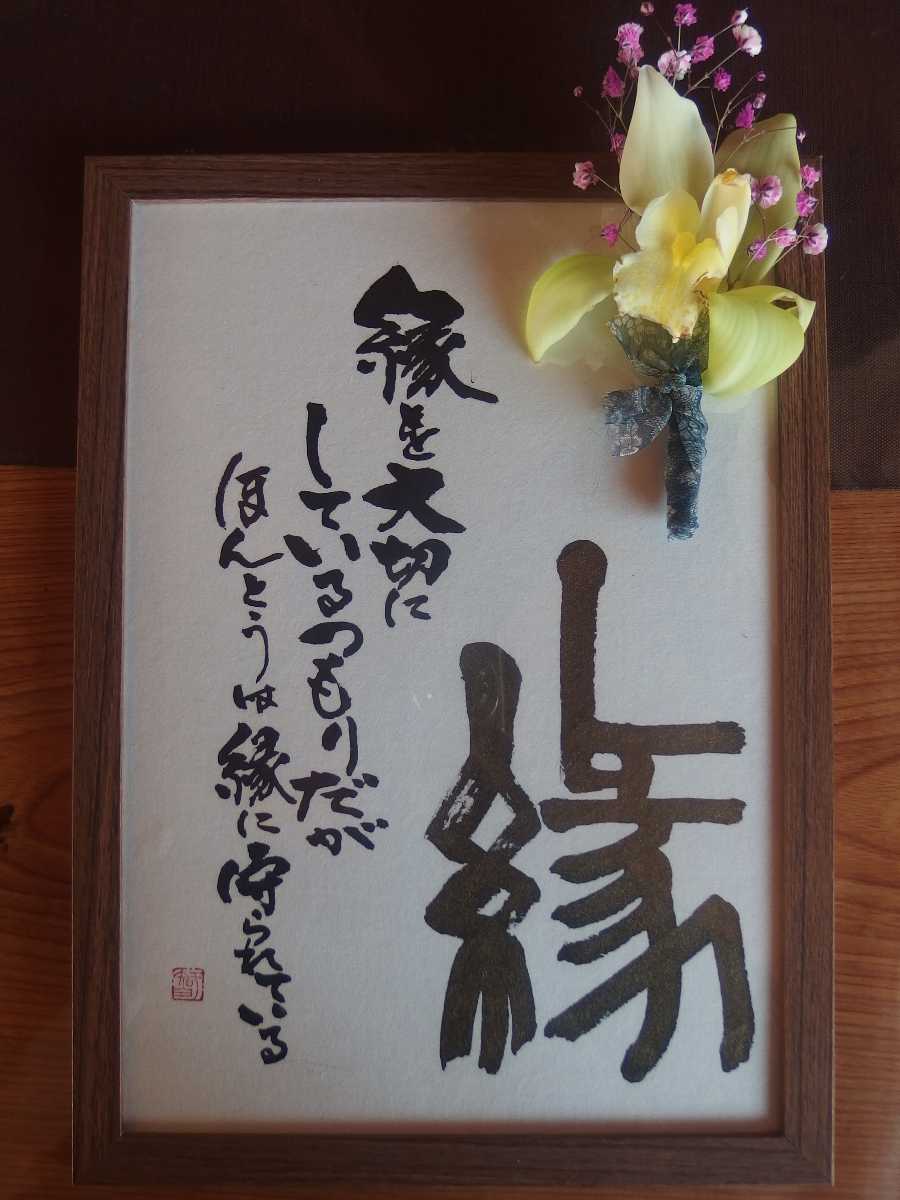 縁
縁を大切に
しているつもりだが
ほんとうは縁に守られている